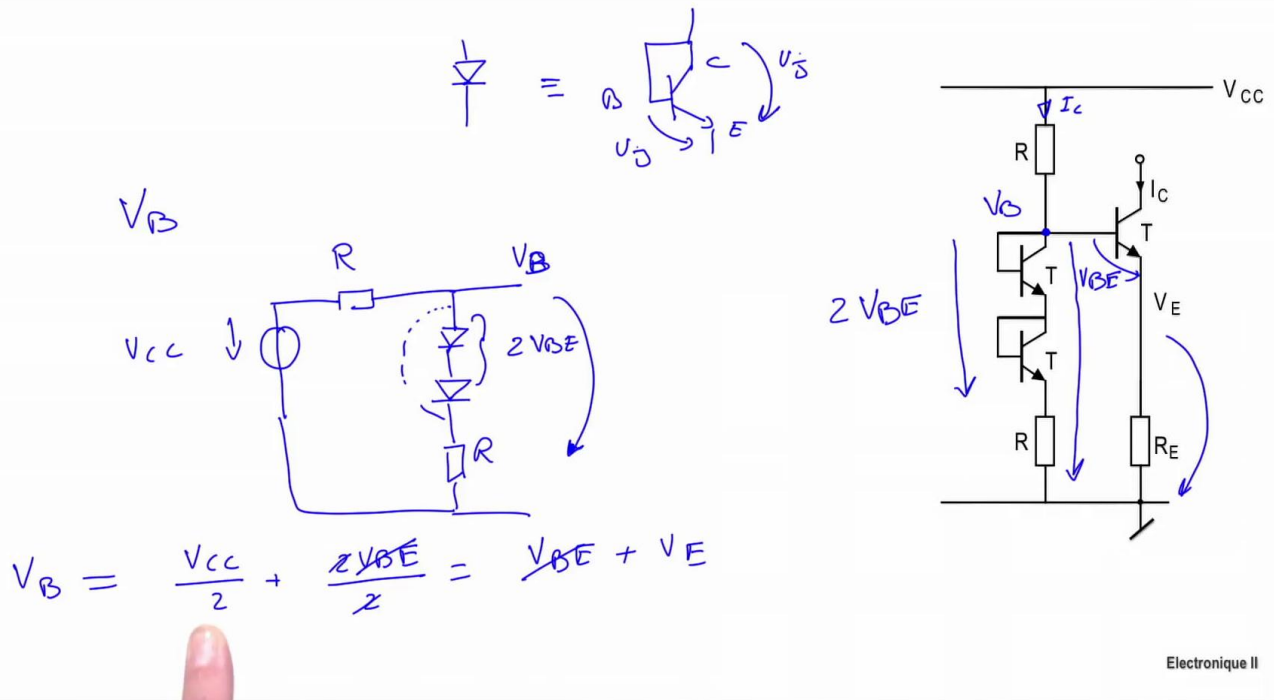 ≡
B
C
E
Uj
Uj
VB
R
VB
VCC
2 VBE
R
VB = VCC/2 + 2VBE/2 = VBE + VE
VCC
Ic
R
VB
IC
T
T
VBE
2 VBE
VE
T
R
RE
Electronique II